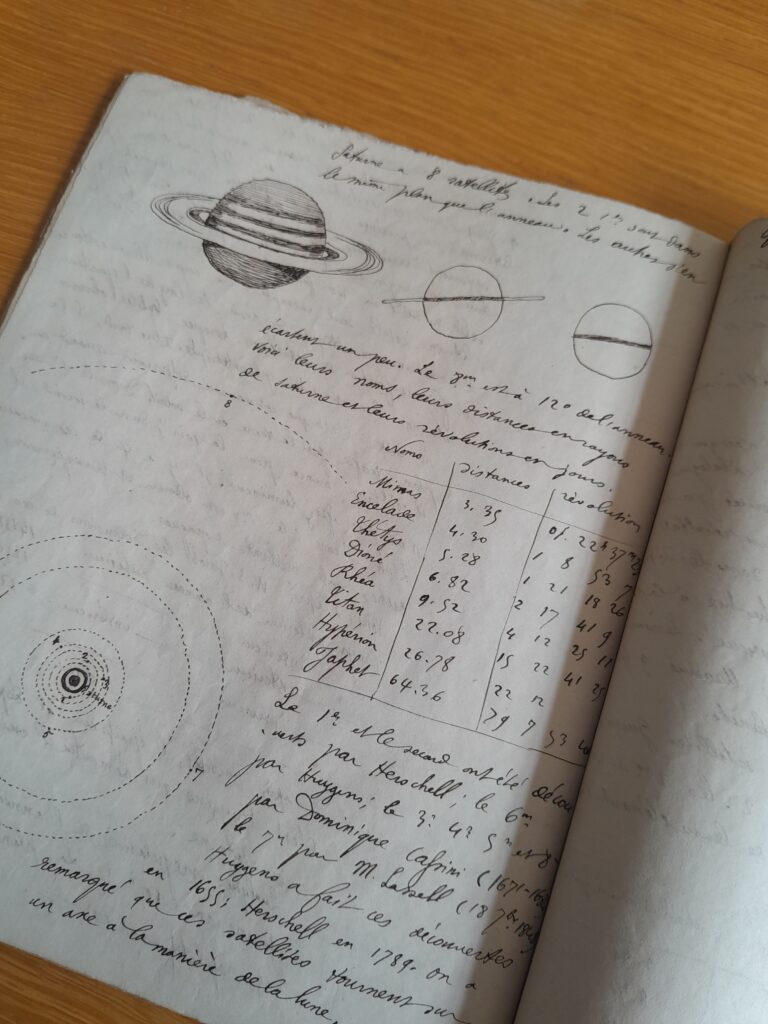 Saturne a 8 satellites. Les 2 1rs sont dans
le même plan que l'anneau. Les autres s'en
écartent un peu. Le 7me est à 12° de l'anneau.
Voici leurs noms, leurs distances en rayons
de saturne et leurs révolutions en jours.
Noms distances révolution
Mimas 3.35 0j. 22h 37m
Encelade 4.30 1 8 53 7
Thétys 5.28 1 21 18 26
Dioné 6.82 2 17 41 9
Rhéa 9.52 4 12 25 11
Titan 22.08 15 22 41 25
Hypérion 26.78 22 12
Japhet 64.36 79 7 53
8
7
6
Saturne
Le 1er et le second ont été décou
verts par Herschell; le 6me
par Huygens; le 3e 4e 5e et 8
par Dominique Cassini (1671-
le 7e par M. Lassell (18 7bre
Huygens a fait ces découvertes
en 1655; Herschell en 1789. On a
remarqué que ces satellites tournent sur
un axe à la manière de la lune.